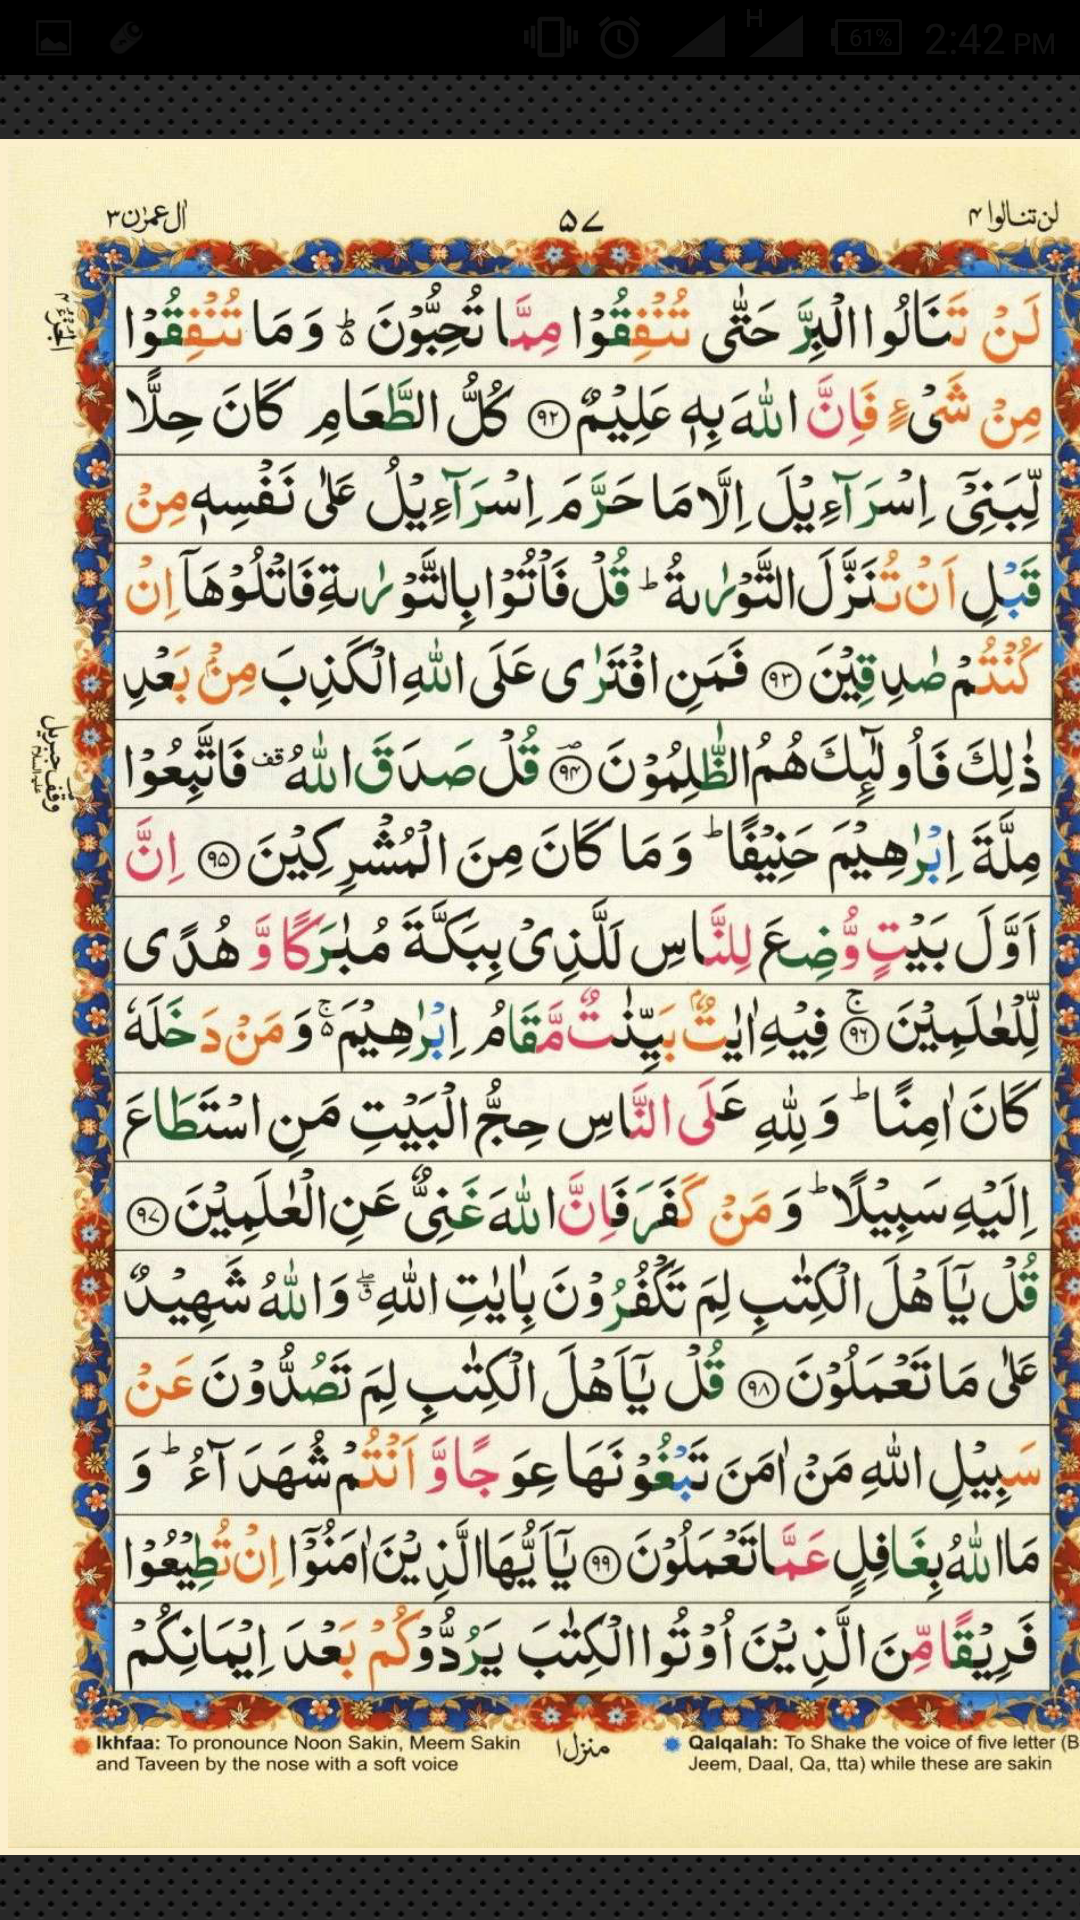 61% 2:42 PM
لن تنالوا ۴
۵۷
اٰل عمرٰن ۳
لَنْ تَنَالُوا الْبِرَّ حَتّٰى تُنْفِقُوْا مِمَّا تُحِبُّوْنَ ؕ۬ وَ مَا تُنْفِقُوْا
مِنْ شَیْءٍ فَاِنَّ اللّٰهَ بِهٖ عَلِیْمٌ ۹۲ كُلُّ الطَّعَامِ كَانَ حِلًّا
لِّبَنِیْۤ اِسْرَآءِیْلَ اِلَّا مَا حَرَّمَ اِسْرَآءِیْلُ عَلٰى نَفْسِهٖ مِنْ
قَبْلِ اَنْ تُنَزَّلَ التَّوْرٰىةُ ؕ قُلْ فَاْتُوْا بِالتَّوْرٰىةِ فَاتْلُوْهَاۤ اِنْ
كُنْتُمْ صٰدِقِیْنَ ۹۳ فَمَنِ افْتَرٰى عَلَى اللّٰهِ الْكَذِبَ مِنْۢ بَعْدِ
ذٰلِكَ فَاُولٰٓىِٕكَ هُمُ الظّٰلِمُوْنَ ۹۴ قُلْ صَدَقَ اللّٰهُ قف فَاتَّبِعُوْا
وقف جبريل عليه السلام
مِلَّةَ اِبْرٰهِیْمَ حَنِیْفًا ؕ وَ مَا كَانَ مِنَ الْمُشْرِكِیْنَ ۹۵ اِنَّ
اَوَّلَ بَیْتٍ وُّضِعَ لِلنَّاسِ لَلَّذِیْ بِبَكَّةَ مُبٰرَكًا وَّ هُدًى
لِّلْعٰلَمِیْنَ ۚ۹۶ فِیْهِ اٰیٰتٌۢ بَیِّنٰتٌ مَّقَامُ اِبْرٰهِیْمَ ۚ۬ وَ مَنْ دَخَلَهٗ
كَانَ اٰمِنًا ؕ وَ لِلّٰهِ عَلَى النَّاسِ حِجُّ الْبَیْتِ مَنِ اسْتَطَاعَ
اِلَیْهِ سَبِیْلًا ؕ وَ مَنْ كَفَرَ فَاِنَّ اللّٰهَ غَنِیٌّ عَنِ الْعٰلَمِیْنَ ۹۷
قُلْ یٰۤاَهْلَ الْكِتٰبِ لِمَ تَكْفُرُوْنَ بِاٰیٰتِ اللّٰهِ ۖۗ وَ اللّٰهُ شَهِیْدٌ
عَلٰى مَا تَعْمَلُوْنَ ۹۸ قُلْ یٰۤاَهْلَ الْكِتٰبِ لِمَ تَصُدُّوْنَ عَنْ
سَبِیْلِ اللّٰهِ مَنْ اٰمَنَ تَبْغُوْنَهَا عِوَجًا وَّ اَنْتُمْ شُهَدَآءُ ؕ وَ
مَا اللّٰهُ بِغَافِلٍ عَمَّا تَعْمَلُوْنَ ۹۹ یٰۤاَیُّهَا الَّذِیْنَ اٰمَنُوْۤا اِنْ تُطِیْعُوْا
فَرِیْقًا مِّنَ الَّذِیْنَ اُوْتُوا الْكِتٰبَ یَرُدُّوْكُمْ بَعْدَ اِیْمَانِكُمْ
منزل ۱
Ikhfaa: To pronounce Noon Sakin, Meem Sakin
and Taveen by the nose with a soft voice
Qalqalah: To Shake the voice of five letter (B
Jeem, Daal, Qa, tta) while these are sakin